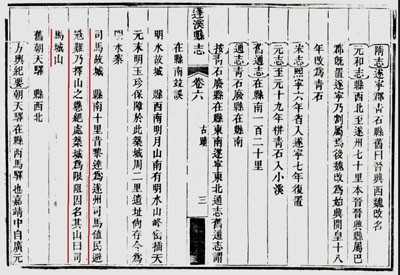 隋志遂寧郡青石縣舊曰晉興西魏改名
元和志縣西北至遂州七十里本晉晉興縣屬巴
郡既置遂寧乃割屬焉後魏改為始興開皇十八
年改為青石
宋志熙寧六年省入遂寧七年復置
元志至元十九年併青石入小溪
舊通志在縣南一百二十里
通志青石廢縣在縣南
按青石廢縣在縣東南遂寧東北通志舊通志謂
蓬溪縣志 卷六 古蹟 三
在縣南並誤
明水故城 縣西南明月山南有明水山峰高插天
元末明玉珍保障於此築城周二里遺址尚存今為
明水寨
司馬故城 縣南十里昔黎達為遂州司馬值民避
寇難乃擇山之懸絕處築城為限阻因名其山曰司
馬城山
舊朝天驛 縣西北
方輿紀要朝天驛在縣西馬驛也嘉靖中自廣元